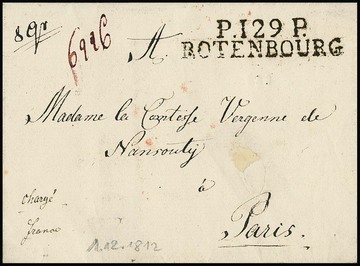 P.129 P.
ROTENBOURG
6926
Madame la Comtesse Vergenne de
Nansouty
à
Paris.
chargé
franco
11.12.1812